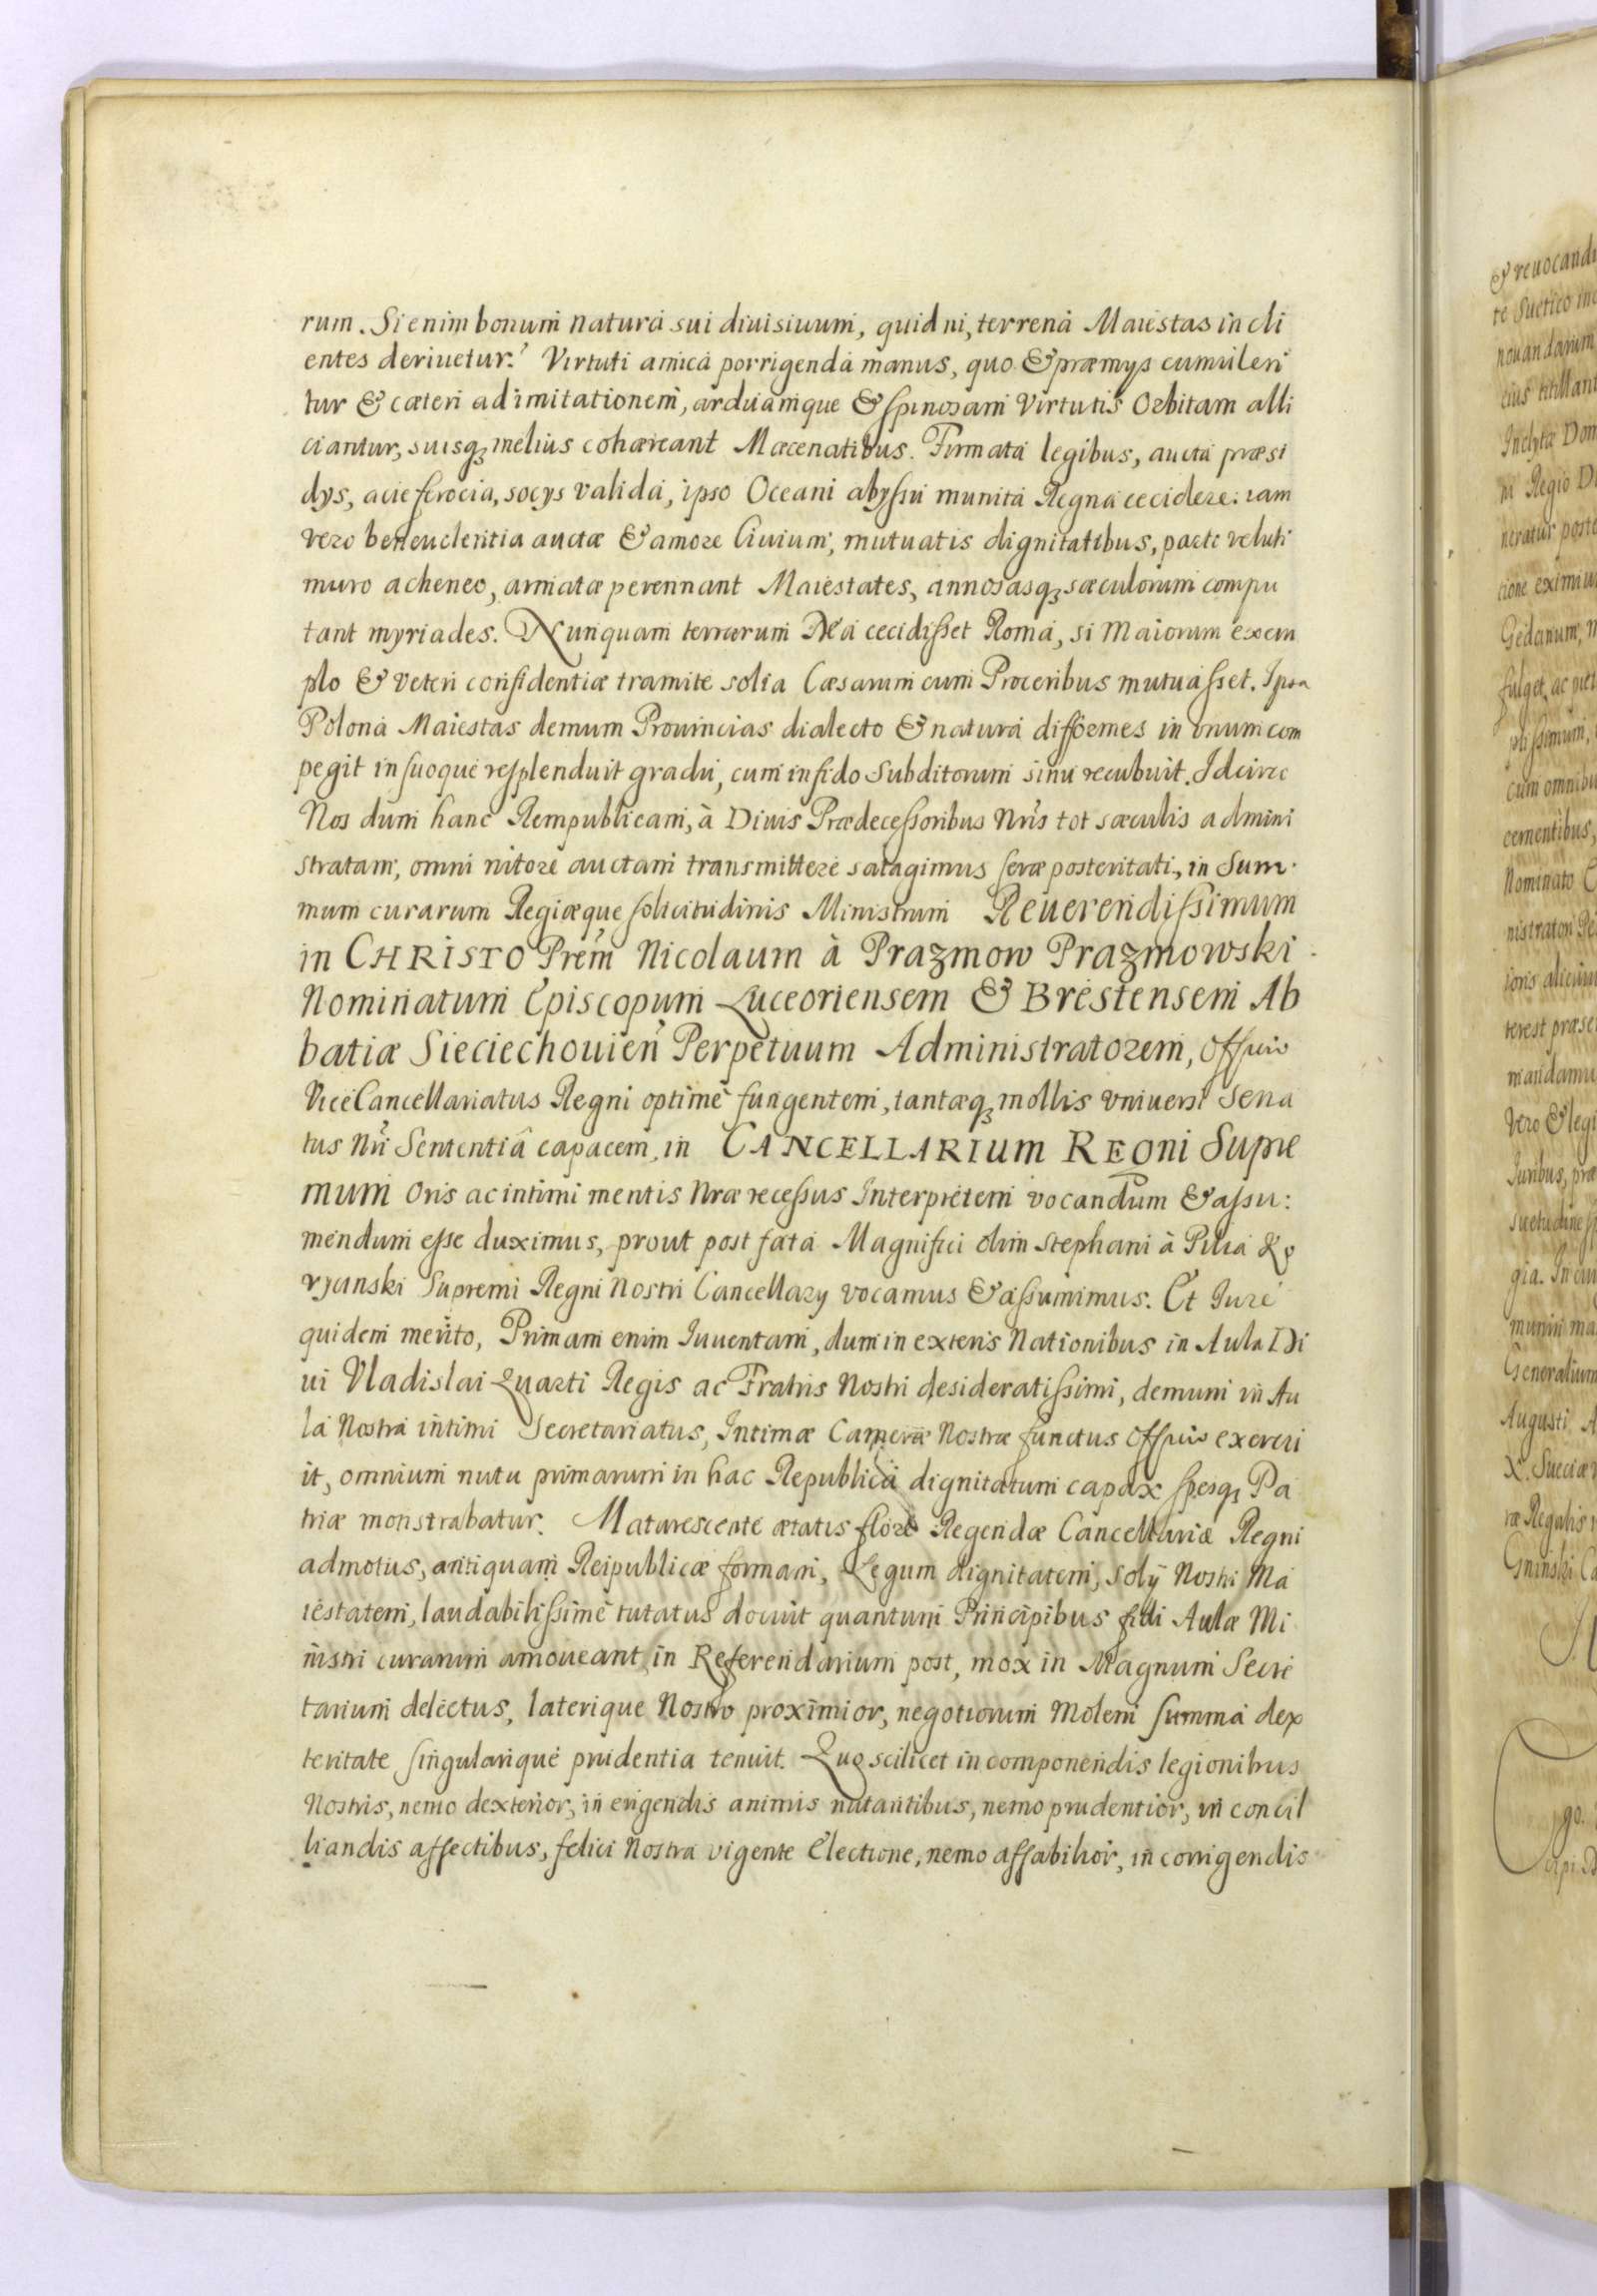 rum. Si enim bonum natura sui diuisiuum, quid ni, terrena Maiestas in cli
entes deriuetur? Virtuti amica porrigenda manus, quo & præmys cumuleri
tur & cæteri ad imitationem, arduamque & spinosam Virtutis Orbitam alli
ciantur, suisq; melius cohæreant Mæcenatibus. Firmata legibus, aucta præsi
dys, acie ferocia, socys valida, ipso Oceani abyssu munita Regna cecidere: iam
vero beneuolentia auctæ & amore Ciuium, mutuatis dignitatibus, pacte veluti
muro acheneo, armatæ perennant Maiestates, annosasq; sæculorum compu
tant myriades. Nunquam terrarum Dea cecidisset Roma, si Maiorum exem
plo & veteri confidentiæ tramite solia Cæsarum cum Proceribus mutuasset. Ipsa
Polona Maiestas demum Prouincias dialecto & natura difformes in vnum com
pegit in suoque resplenduit gradu, cum in fido Subditorum sinu recubuit. Idcirc
Nos dum hanc Rempublicam, à Diuis Prædecessoribus Nris tot sæculis admini
stratam, omni nitore auctam transmittere satagimus seræ posteritati, in Sum
mum curarum Regiæque solicitudinis Ministrum Reuerendissimum
in CHRISTO Prem Nicolaum à Prazmow Prazmowski
Nominatum Episcopum Luceoriensem & Brestensem Ab
batiæ Sieciechouien Perpetuum Administratorem, Officio
ViceCancellariatus Regni optime fungentem, tantæq; mollis vniuersi Sena
tus Nri Sententiâ capacem, in CANCELLARIUM REGni Supre
mum Oris ac intimi mentis Nræ recessus Interpretem vocandum & assu:
mendum esse duximus, prout post fata Magnifici olim Stephani à Pilia Ko
rycinski Supremi Regni Nostri Cancellary vocamus & assumimus. Et Iure
quidem merito, Primam enim Iuuentam, dum in exteris Nationibus in Aula Di
ui Vladislai Quarti Regis ac Fratris Nostri desideratissimi, demum in Au
la Nostra intimi Secretariatus, Intimæ Cameræ Nostræ functus Officio exercu
it, omnium nutu primarum in hac Republica dignitatum capax spesq; Pa
triæ monstrabatur. Maturescente ætatis flore Regendæ Cancellariæ Regni
admotus, antiquam Reipublicæ formam, Legum dignitatem, solÿ Nostri Ma
iestatem, laudabilissime tutatus docuit quantum Principibus fidi Aulæ Mi
nistri curarum amoueant, in Referendarium post, mox in Magnum Secre
tarium delectus, laterique Nostro proximior, negotiorum Molem summa dex
teritate singularique prudentia tenuit. Quo scilicet in componendis legionibus
Nostris, nemo dexterior, in erigendis animis nutantibus, nemo prudentior, in concil
liandis affectibus, felici Nostra vigente Electione, nemo affabilior, in corrigendis